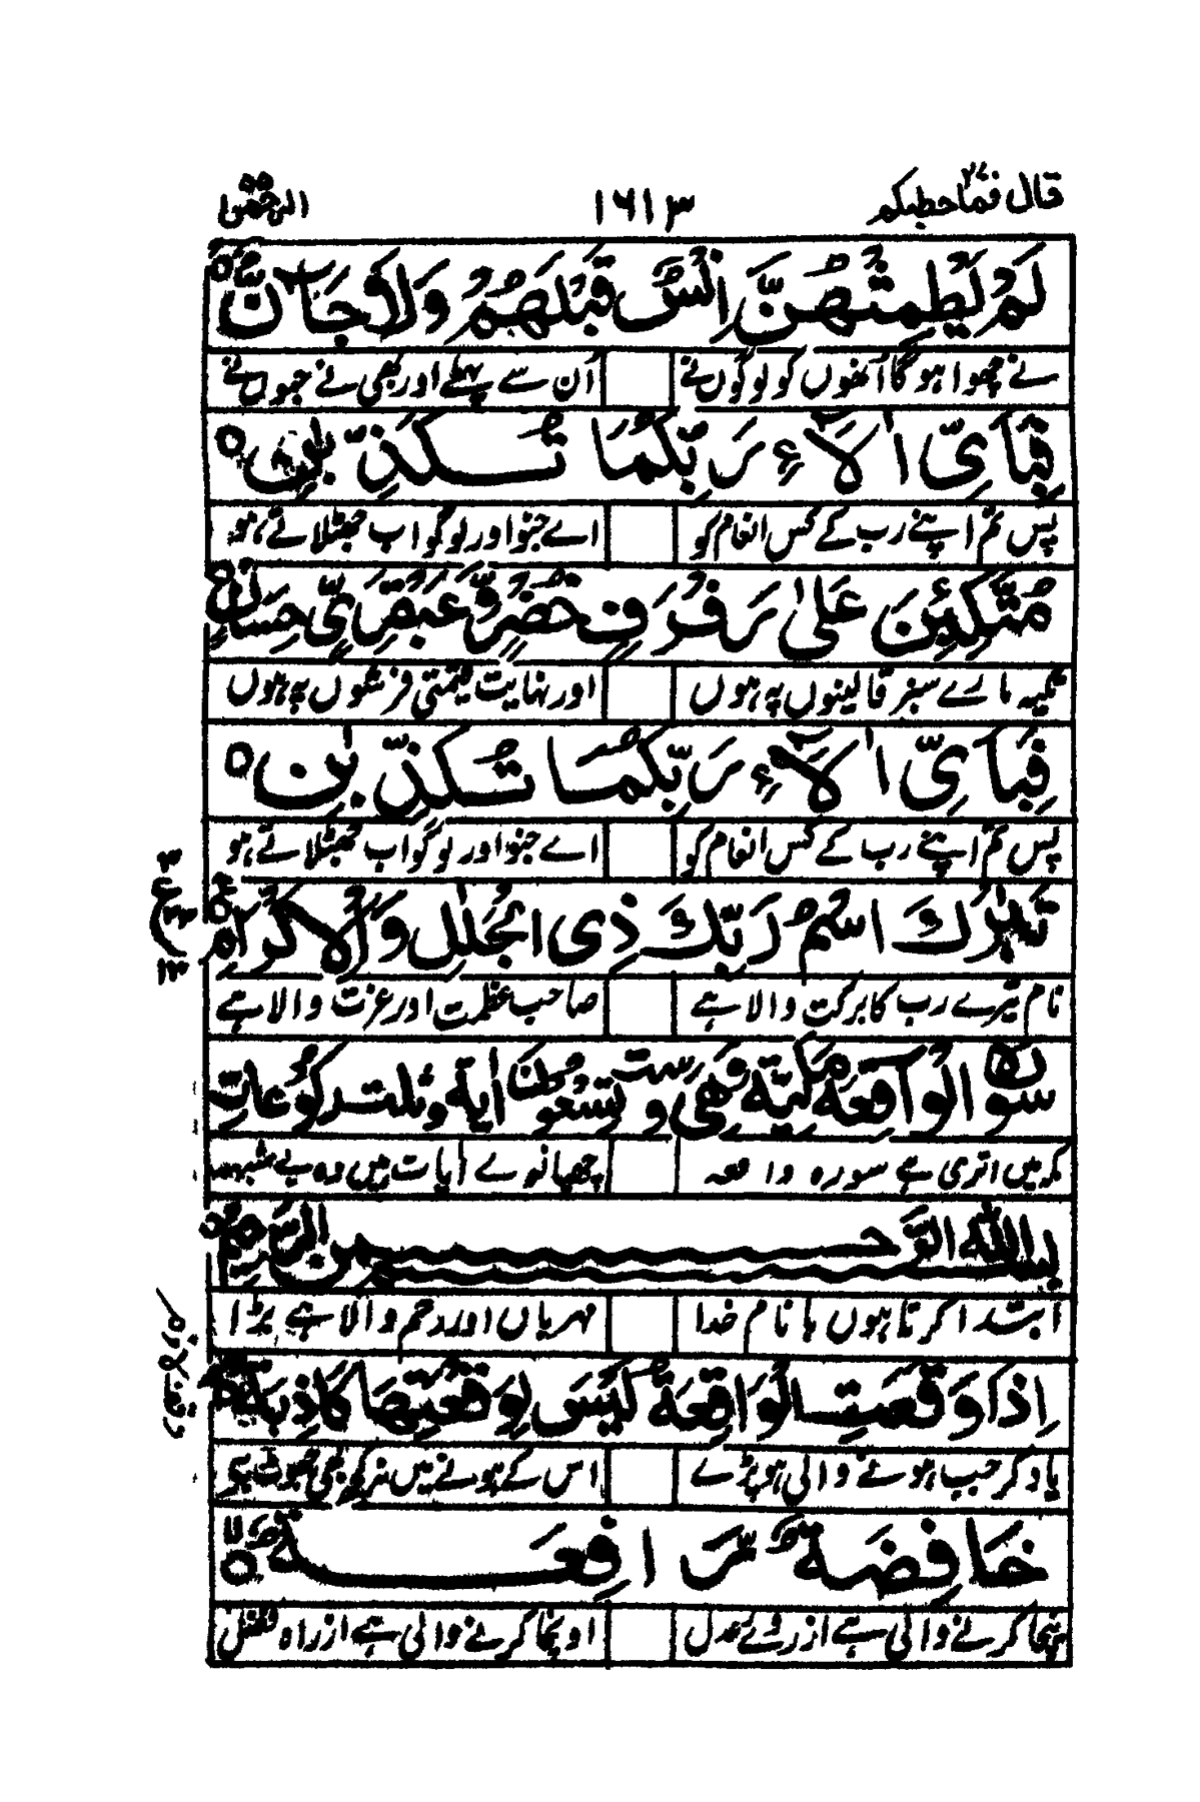 قال فما خطبکم ۲۷ ۱۶۱۳ الرحمٰن ۵۵
لَمْ يَطْمِثْهُنَّ إِنْسٌ قَبْلَهُمْ وَلَا جَانٌّ ۝
نے چھوا ہو گا اُنھوں کو لوگوں نے اُن سے پہلے اور بھی نے جنوں نے
فَبِأَيِّ اٰلَآءِ رَبِّكُمَا تُكَذِّبٰنِ ۝
پس تم اپنے رب کے کس انعام کو اے جنو اور لوگو اب جھٹلاتے ہو
مُتَّكِئِينَ عَلٰى رَفْرَفٍ خُضْرٍ وَّعَبْقَرِيٍّ حِسَانٍ ۝
تکیہ مارے سبز قالینوں پہ ہوں اور نہایت قیمتی فرشوں پہ ہوں
فَبِأَيِّ اٰلَآءِ رَبِّكُمَا تُكَذِّبٰنِ ۝
پس تم اپنے رب کے کس انعام کو اے جنو اور لوگو اب جھٹلاتے ہو
تَبٰرَكَ اسْمُ رَبِّكَ ذِى الْجَلٰلِ وَالْاِكْرَامِ ۝
۳ ع ۱۳
نام تیرے رب کا برکت والا ہے صاحب عظمت اور عزت والا ہے
سورة الواقعة مكية وهي ست وتسعون اٰية وثلث ركوعات
مکہ میں اتری ہے سورہ واقعہ چھیانوے آیات ہیں وہ بے شبہہ
بسم الله الرَّحمٰن الرَّحيم
ابتدا کرتا ہوں با نام خدا مہرباں اور رحم والا ہے بڑا
إِذَا وَقَعَتِ الْوَاقِعَةُ لَيْسَ لِوَقْعَتِهَا كَاذِبَةٌ ۝
یاد کر جب ہونے والی ہو پڑے اس کے ہونے میں نہ کچھ بھی جھوٹ ہے
خَافِضَةٌ رَّافِعَةٌ ۝
نیچا کرنے والی ہے از روئے عدل اونچا کرنے والی ہے از راہ فضل